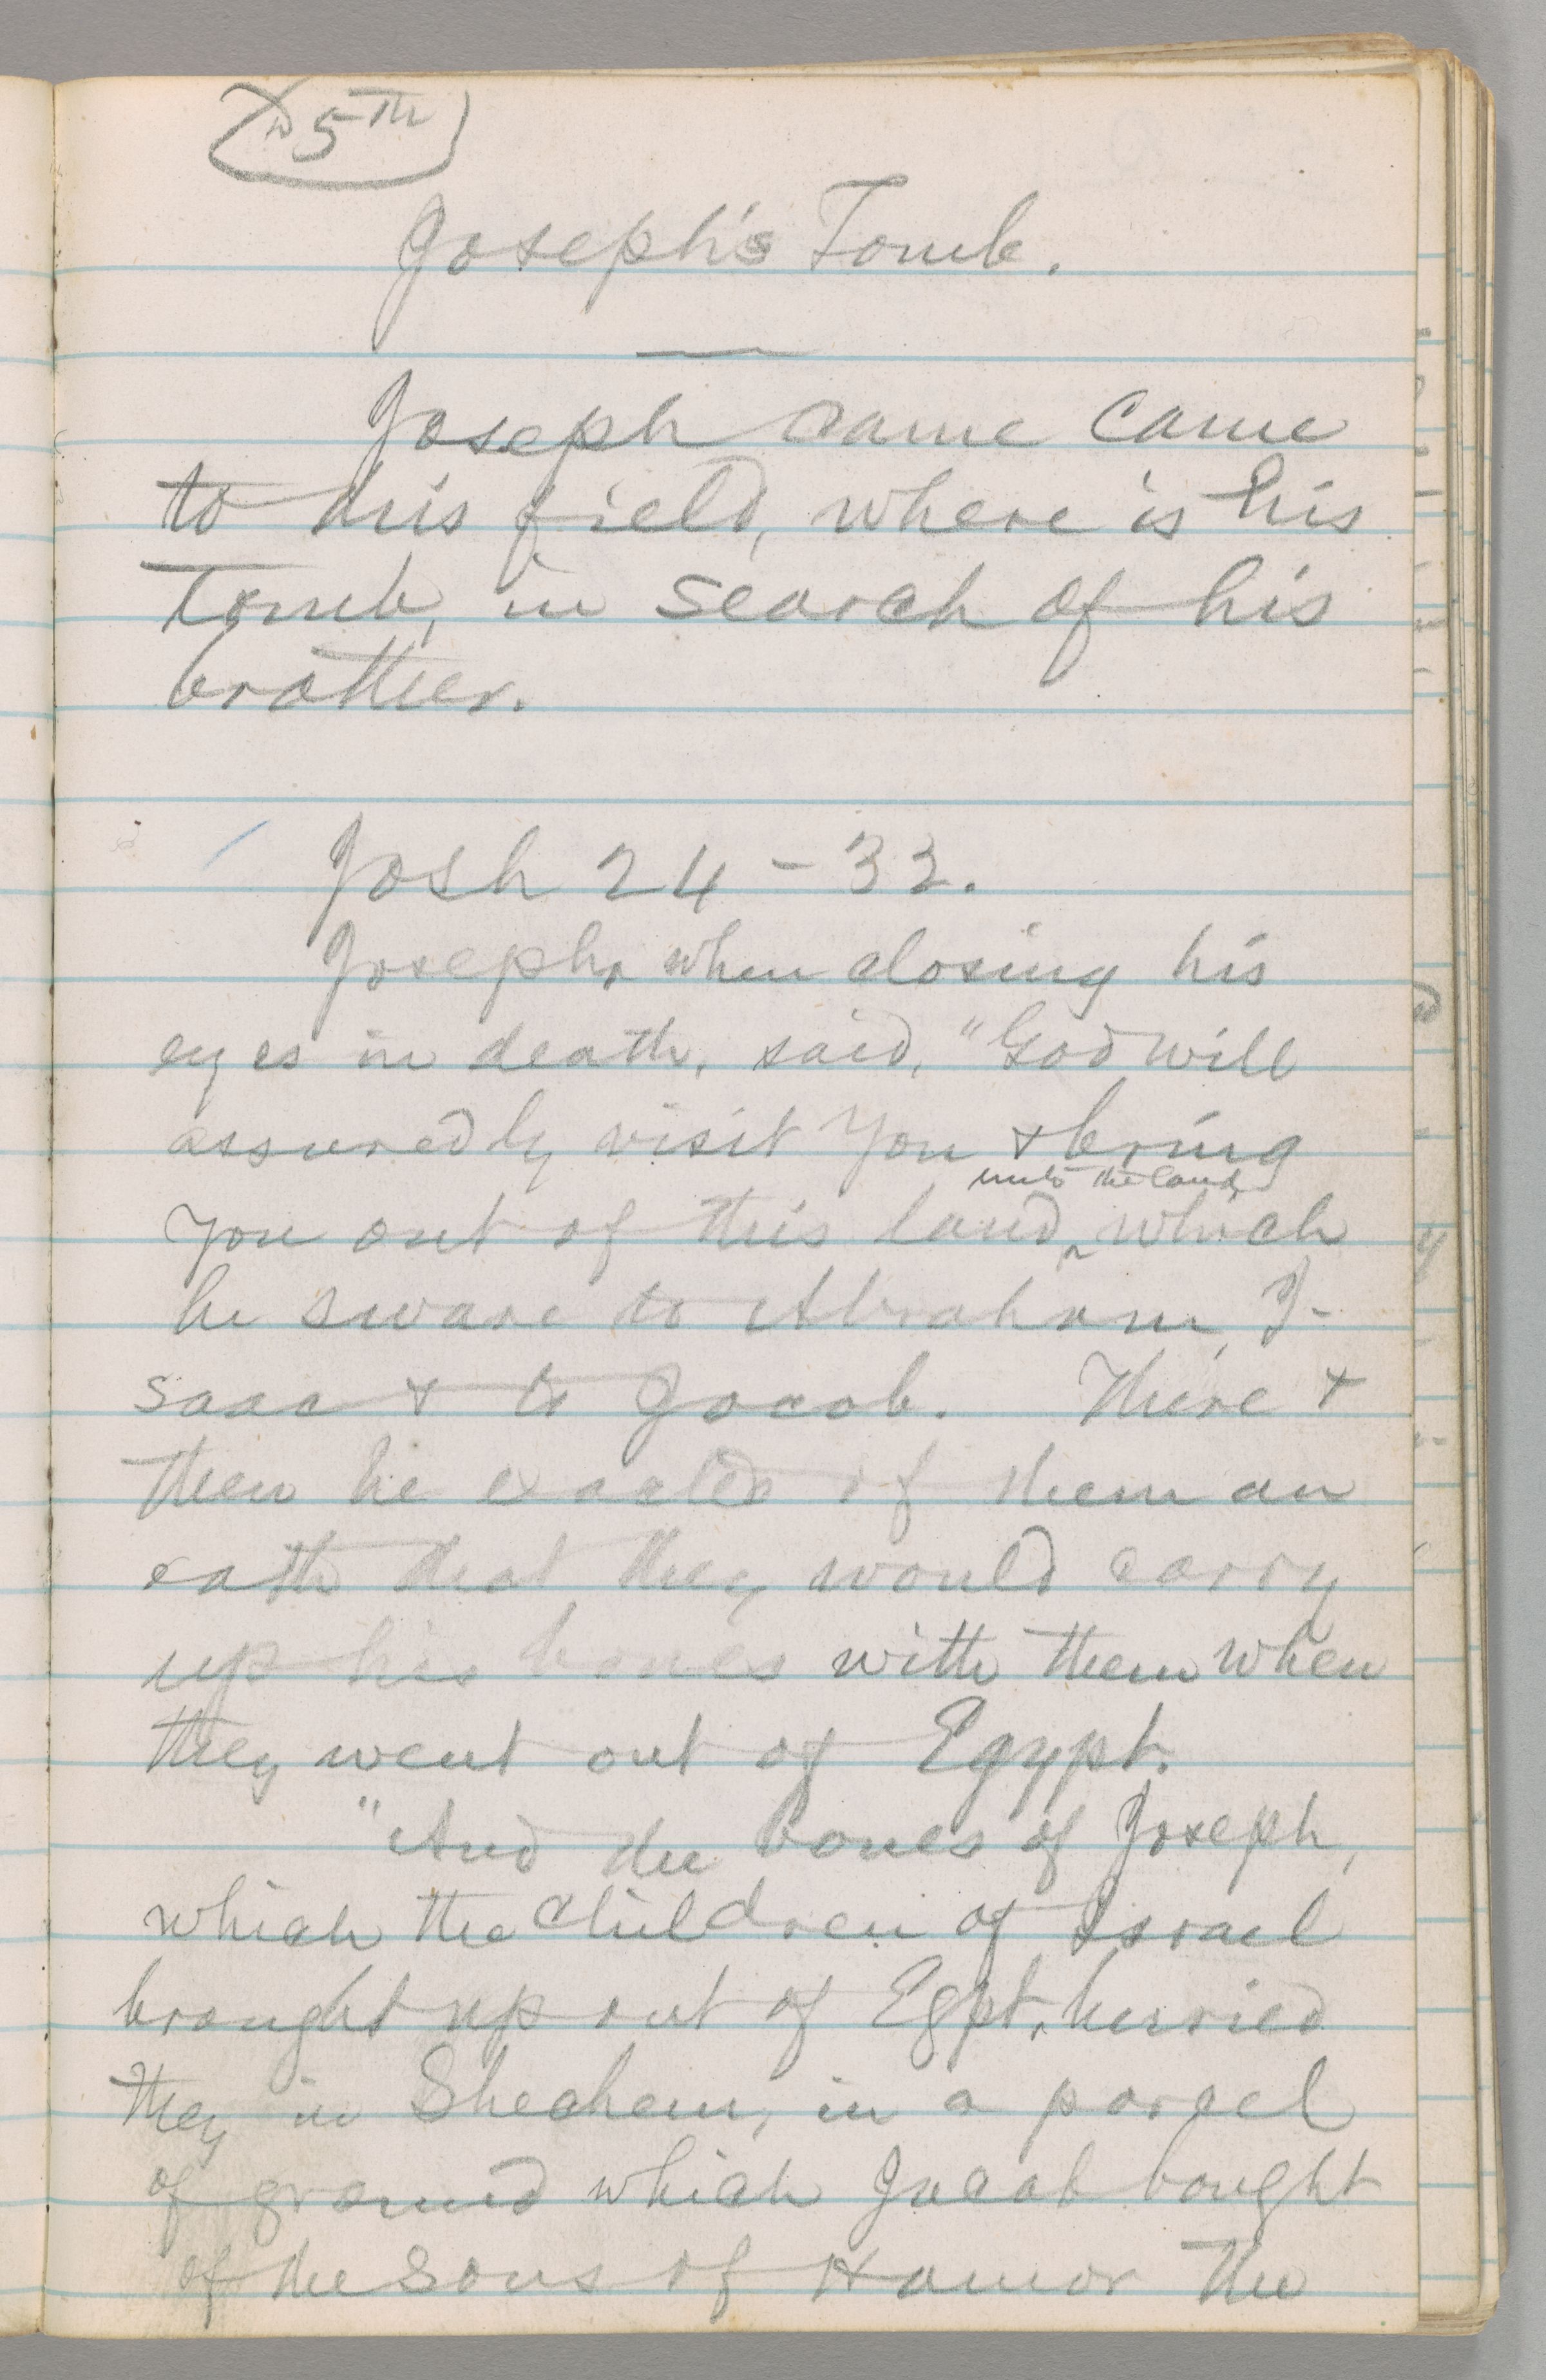 5th
Joseph's Tomb.
Joseph came came
to this field, where is his
Tomb, in search of his
brother.
Josh 24 - 32.
Joseph, when closing his
eyes in death, said, "God will
assuredly visit you & bring
unto the land
you out of this land ^ which
he sware to Abraham, I-
saac & to Jacob. There &
then he exacted of them an
oath that they would carry
up his bones with them when
they went out of Egypt.
"And the bones of Joseph,
which the children of Israel
brought up out of Egpt, burried
they in Shechem, in a parcel
of ground which Jacob bought
of the sons of Hamor the